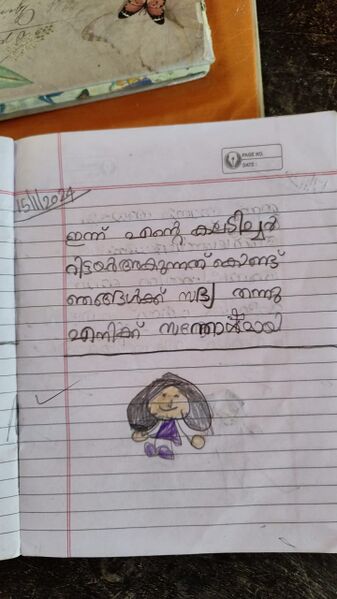 PAGE NO.
DATE :
15/11/2024
ഇന്ന് എന്റെ കലടീച്ചർ
റിട്ടയർ അകുന്നത് കൊണ്ട്
ഞങ്ങൾക്ക് സദ്യ തന്നു
എനിക്ക് സന്തോഷമായി